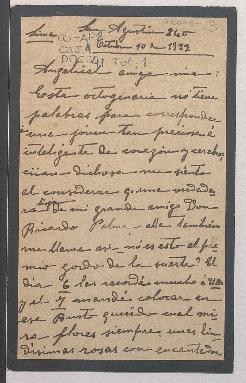 Lima San Agustin 260
Octubre 10 de 1922
CAJA
DOC 41 Fol. 1
Angelical amiga mia:
Esta octogenaria no tiene
palabras para corresponder
a una joven tan preciosa é
inteligente de corazón y cerebro,
dichosa me siento
al considerar q. una verdade
ra hija de mi grande amigo Don
Ricardo Palma, ella tambien
me llama asi - no es esto el pre
mio gordo de la suerte? El
dia 6 las recordé mucho á Uds
y el 7 mandé colocar en
ese Busto querido cual mi
ra flores siempre unas lin
disimas rosas con encantador